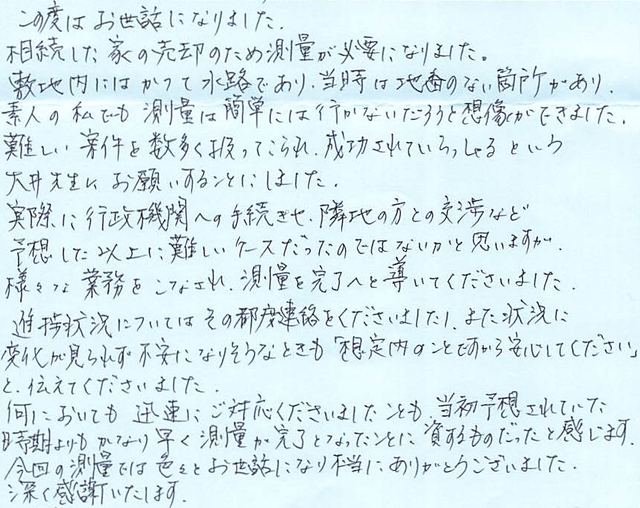 この度はお世話になりました.
相続した家の売却のため測量が必要になりました。
敷地内にはかつて水路であり、当時は地番のない箇所があり、
素人の私でも測量は簡単には行かないだろうと想像ができました.
難しい案件を数多く扱ってこられ、成功されていらっしゃるという
大井先生に お願いすることにしました.
実際に行政機関への手続きや、隣地の方との交渉など
予想した以上に難しいケースだったのではないかと思いますが、
様々な業務をこなされ、測量を完了へと導いてくださいました.
進捗状況についてはその都度連絡をくださいましたし、また状況に
変化が見られず不安になりそうなときも「想定内のことですから安心してください」
と、伝えてくださいました.
何においても 迅速にご対応くださいましたことも、当初予想されていた
時期よりもかなり早く測量が完了となったことに資するものだったと感じます.
今回の測量では色々とお世話になり本当にありがとうございました.
深く感謝いたします.